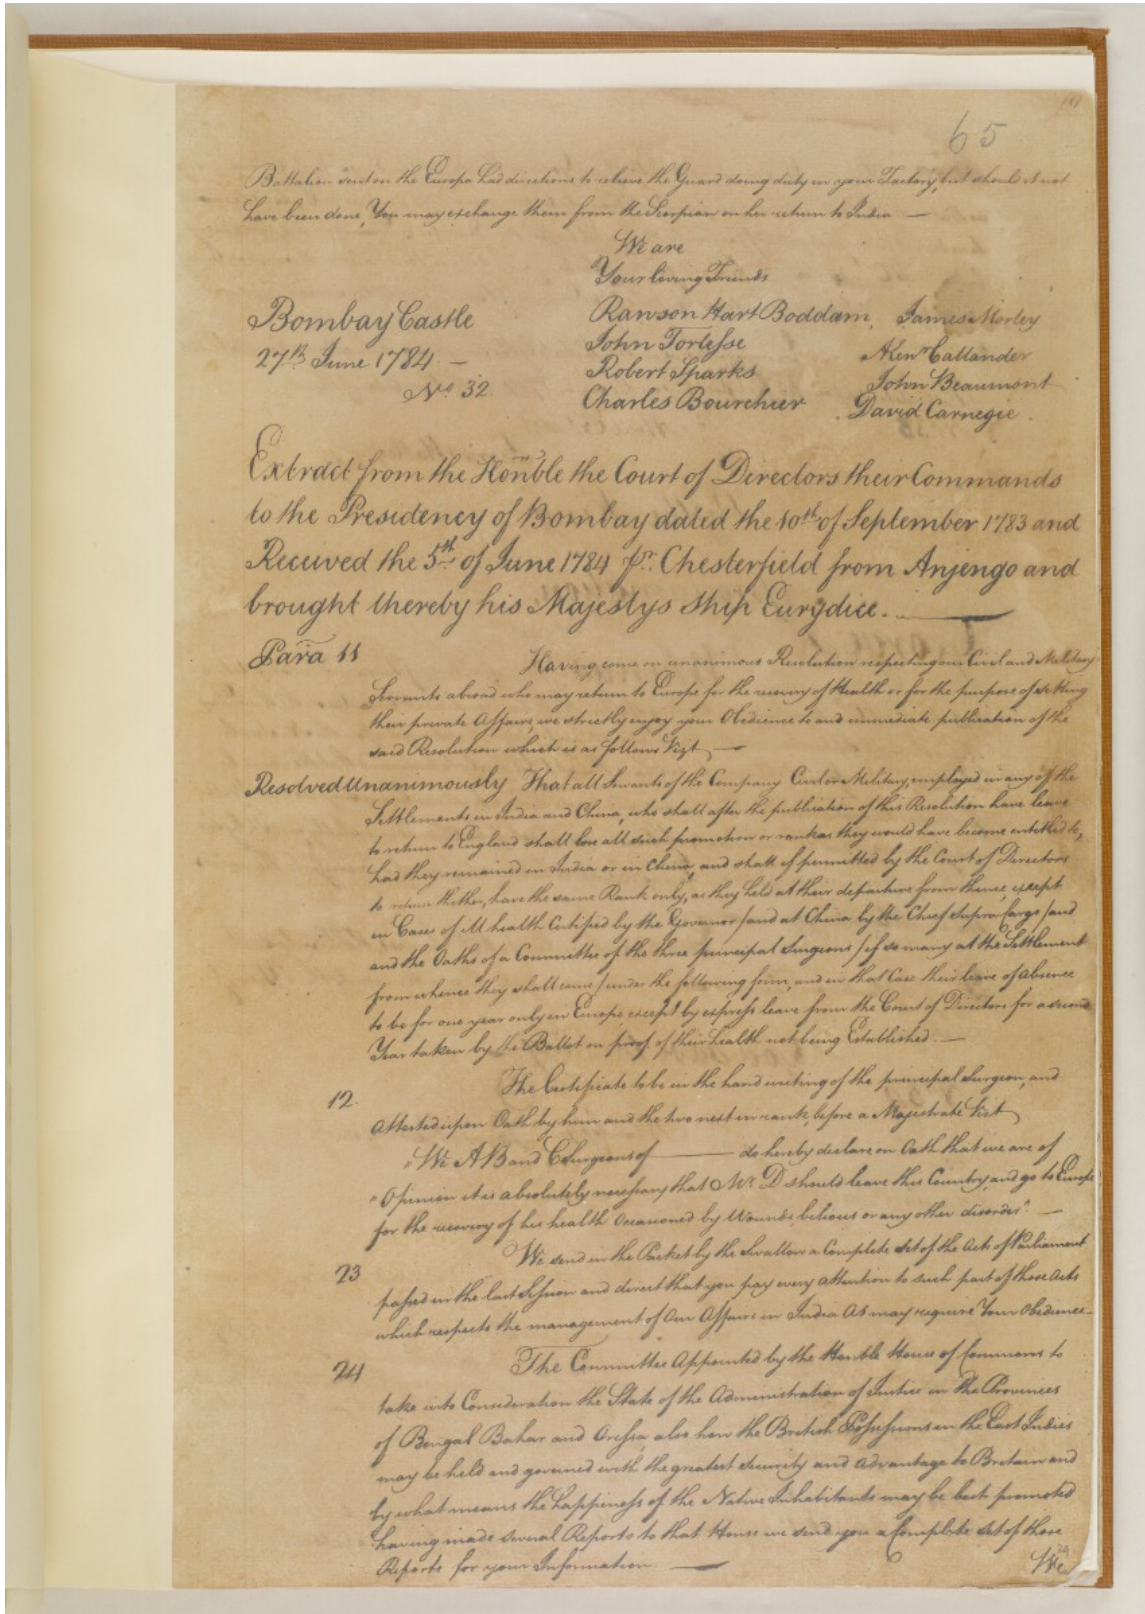 65
Battalion sent on the Europa had directions to relieve the Guard doing duty in your Factory, but should it not
have been done, You may exchange them from the Scorpion on her return to India —
We are
Your loving Friends
Bombay Castle
27th June 1784 —
No. 32
Rawson Hart Boddam, James Morley
John Torlesse
Alexr. Callander
Robert Sparks
John Beaumont
Charles Bourchier
David Carnegie
Extract from the Honble the Court of Directors their Commands
to the Presidency of Bombay dated the 10th of September 1783 and
Received the 5th of June 1784 pr. Chesterfield from Anjengo and
brought thereby his Majestys Ship Eurydice. —
Para 11
Having come on unanimous Resolution respecting our Civil and Military
Servants abroad who may return to Europe for the recovery of Health or for the purpose of settling
their private Affairs, we strictly enjoy your Obedience to and immediate publication of the
said Resolution which is as follows Vizt —
Resolved Unanimously That all Servants of the Company Civil or Military, employed in any of the
Settlements in India and China, who shall after the publication of this Resolution have leave
to return to England shall lose all such promotion or rank as they would have become entitled to,
had they remained in India or in China, and shall if permitted by the Court of Directors
to return thither, have the same Rank only, as they held at their departure from thence, except
in Cases of ill health Certified by the Governor /and at China by the Chief Supra Cargo/ and
and the Oaths of a Committee of the three principal Surgeons /if so many at the Settlement
from whence they shall come/ under the following form, and in that Case their leave of absence
to be for one year only in Europe except by express leave from the Court of Directors for a second
Year taken by the Ballot on proof of their health not being Established. —
12.
The Certificate to be in the hand writing of the principal Surgeon, and
attested upon Oath by him and the two next in rank, before a Majestrate Vizt
"We A B and C Surgeons of —— do hereby declare on Oath that we are of
"Opinion it is absolutely necessary that Mr. D should leave this Country and go to Europe
for the recovery of his health Occasioned by Wounds, belious or any other disorder". —
23
We send in the Packet by the Swallow a Complete Set of the Acts of Parliament
passed in the last Session and direct that you pay every attention to such part of those Acts
which respects the management of Our Affairs in India as may require Your Obedience —
24
The Committee Appointed by the Honble House of Commons to
take into Consideration the State of the Administration of Justice in the Provinces
of Bengal Bahar and Orissa, also how the British Possessions in the East Indies
may be held and governed with the greatest Security and Advantage to Britain and
by what means the happiness of the Native Inhabitants may be best promoted
having made several Reports to that House we send you a Complete Set of those
Reports for your Information. —
We